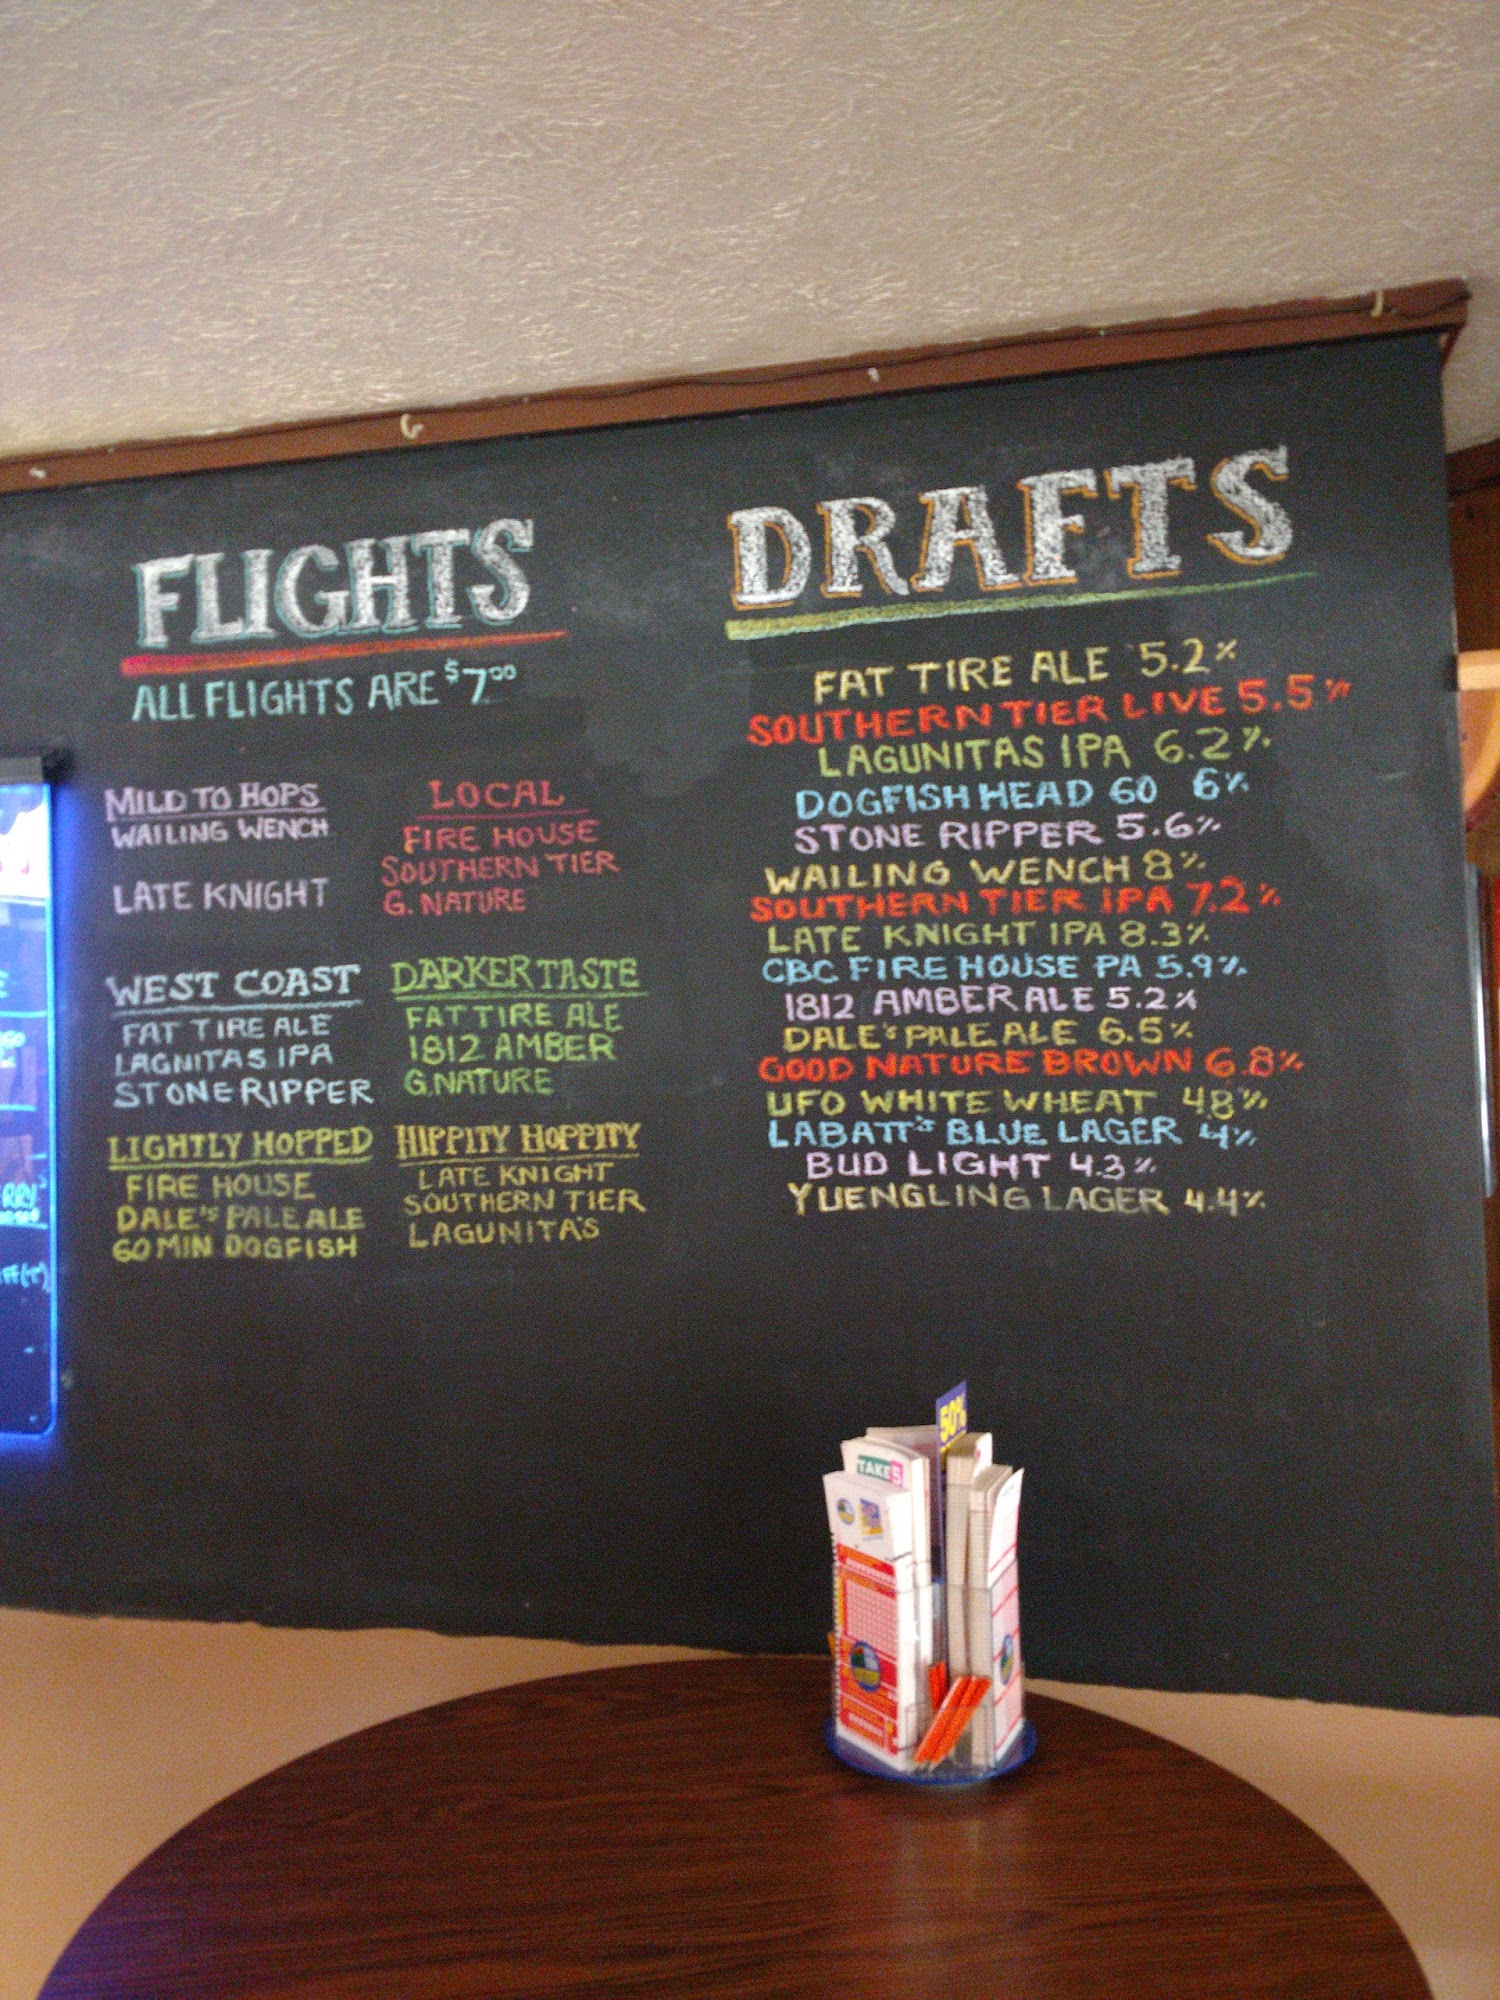 FLIGHTS
ALL FLIGHTS ARE $7.00
MILD TO HOPS
WAILING WENCH
LATE KNIGHT
LOCAL
FIRE HOUSE
SOUTHERN TIER
G. NATURE
WEST COAST
FAT TIRE ALE
LAGNITAS IPA
STONE RIPPER
DARKER TASTE
FAT TIRE ALE
1812 AMBER
G.NATURE
LIGHTLY HOPPED
FIRE HOUSE
DALE'S PALE ALE
60 MIN DOGFISH
HIPPITY HOPPITY
LATE KNIGHT
SOUTHERN TIER
LAGUNITA'S
DRAFTS
FAT TIRE ALE 5.2%
SOUTHERN TIER LIVE 5.5%
LAGUNITAS IPA 6.2%
DOGFISH HEAD 60 6%
STONE RIPPER 5.6%
WAILING WENCH 8%
SOUTHERN TIER IPA 7.2%
LATE KNIGHT IPA 8.3%
CBC FIRE HOUSE PA 5.9%
1812 AMBER ALE 5.2%
DALE'S PALE ALE 6.5%
GOOD NATURE BROWN 6.8%
UFO WHITE WHEAT 4.8%
LABATT'S BLUE LAGER 4%
BUD LIGHT 4.3%
YUENGLING LAGER 4.4%
50%
TAKE 5